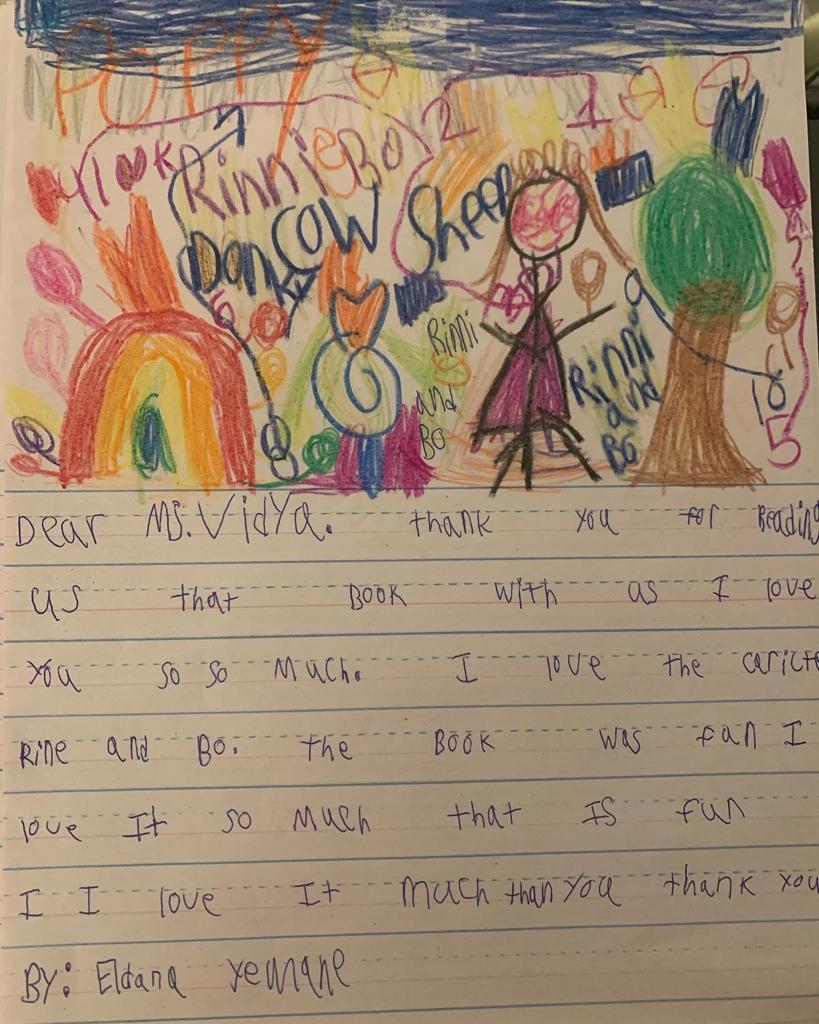 POPPY
2
1
RinnieBo
COW
Sheep
Donky
9
Rinni
and
Bo
Rinni
and
Bo
10
8
5
Dear Ms. Vidya. thank you for Reading
us that BOOK with as I love
you so so Much. I love the caricte
Rine and Bo. the BOOK was fan I
love It so Much that IS fun
I I love It Much than you thank you
BY: Eldana Yemane